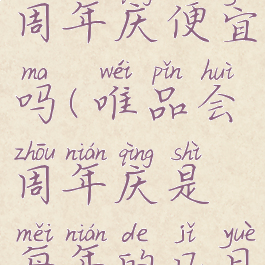 周年庆便宜
ma wéi pǐn huì
吗(唯品会
zhōu nián qìng shì
周年庆是
měi nián de jǐ yuè
每年的几月